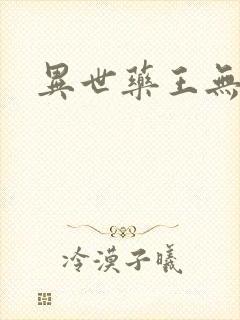 異世藥王無
冷漠子曦